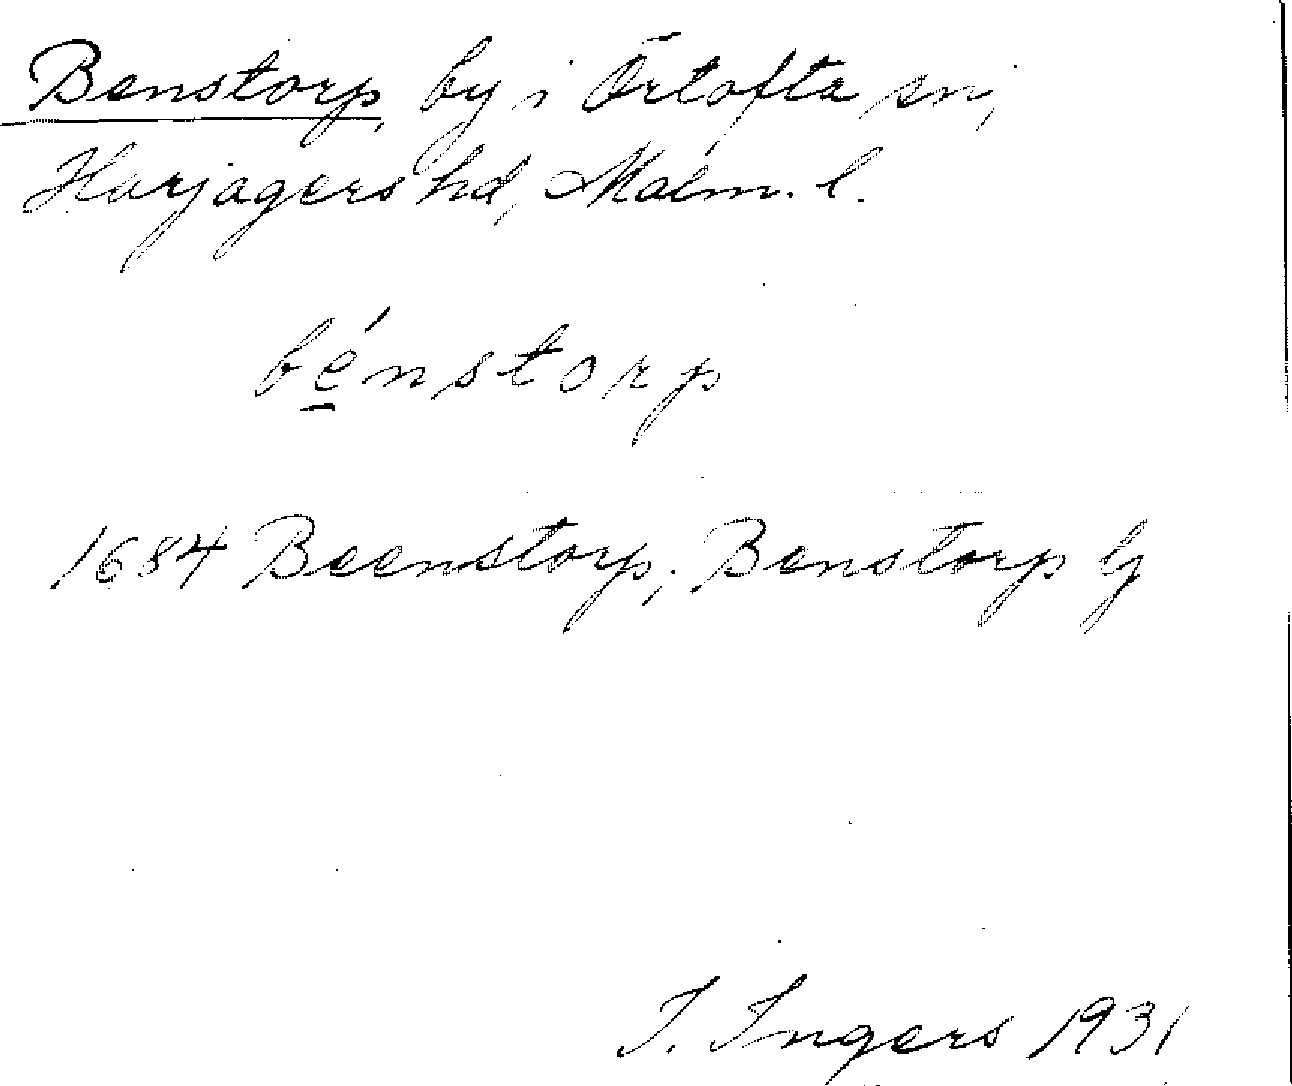 Benstorp, by i Örtofta sn,
Harjagers hd, Malm. l.
bénstorp
1684 Beenstorp; Benstorp lj
I. Ingers 1931